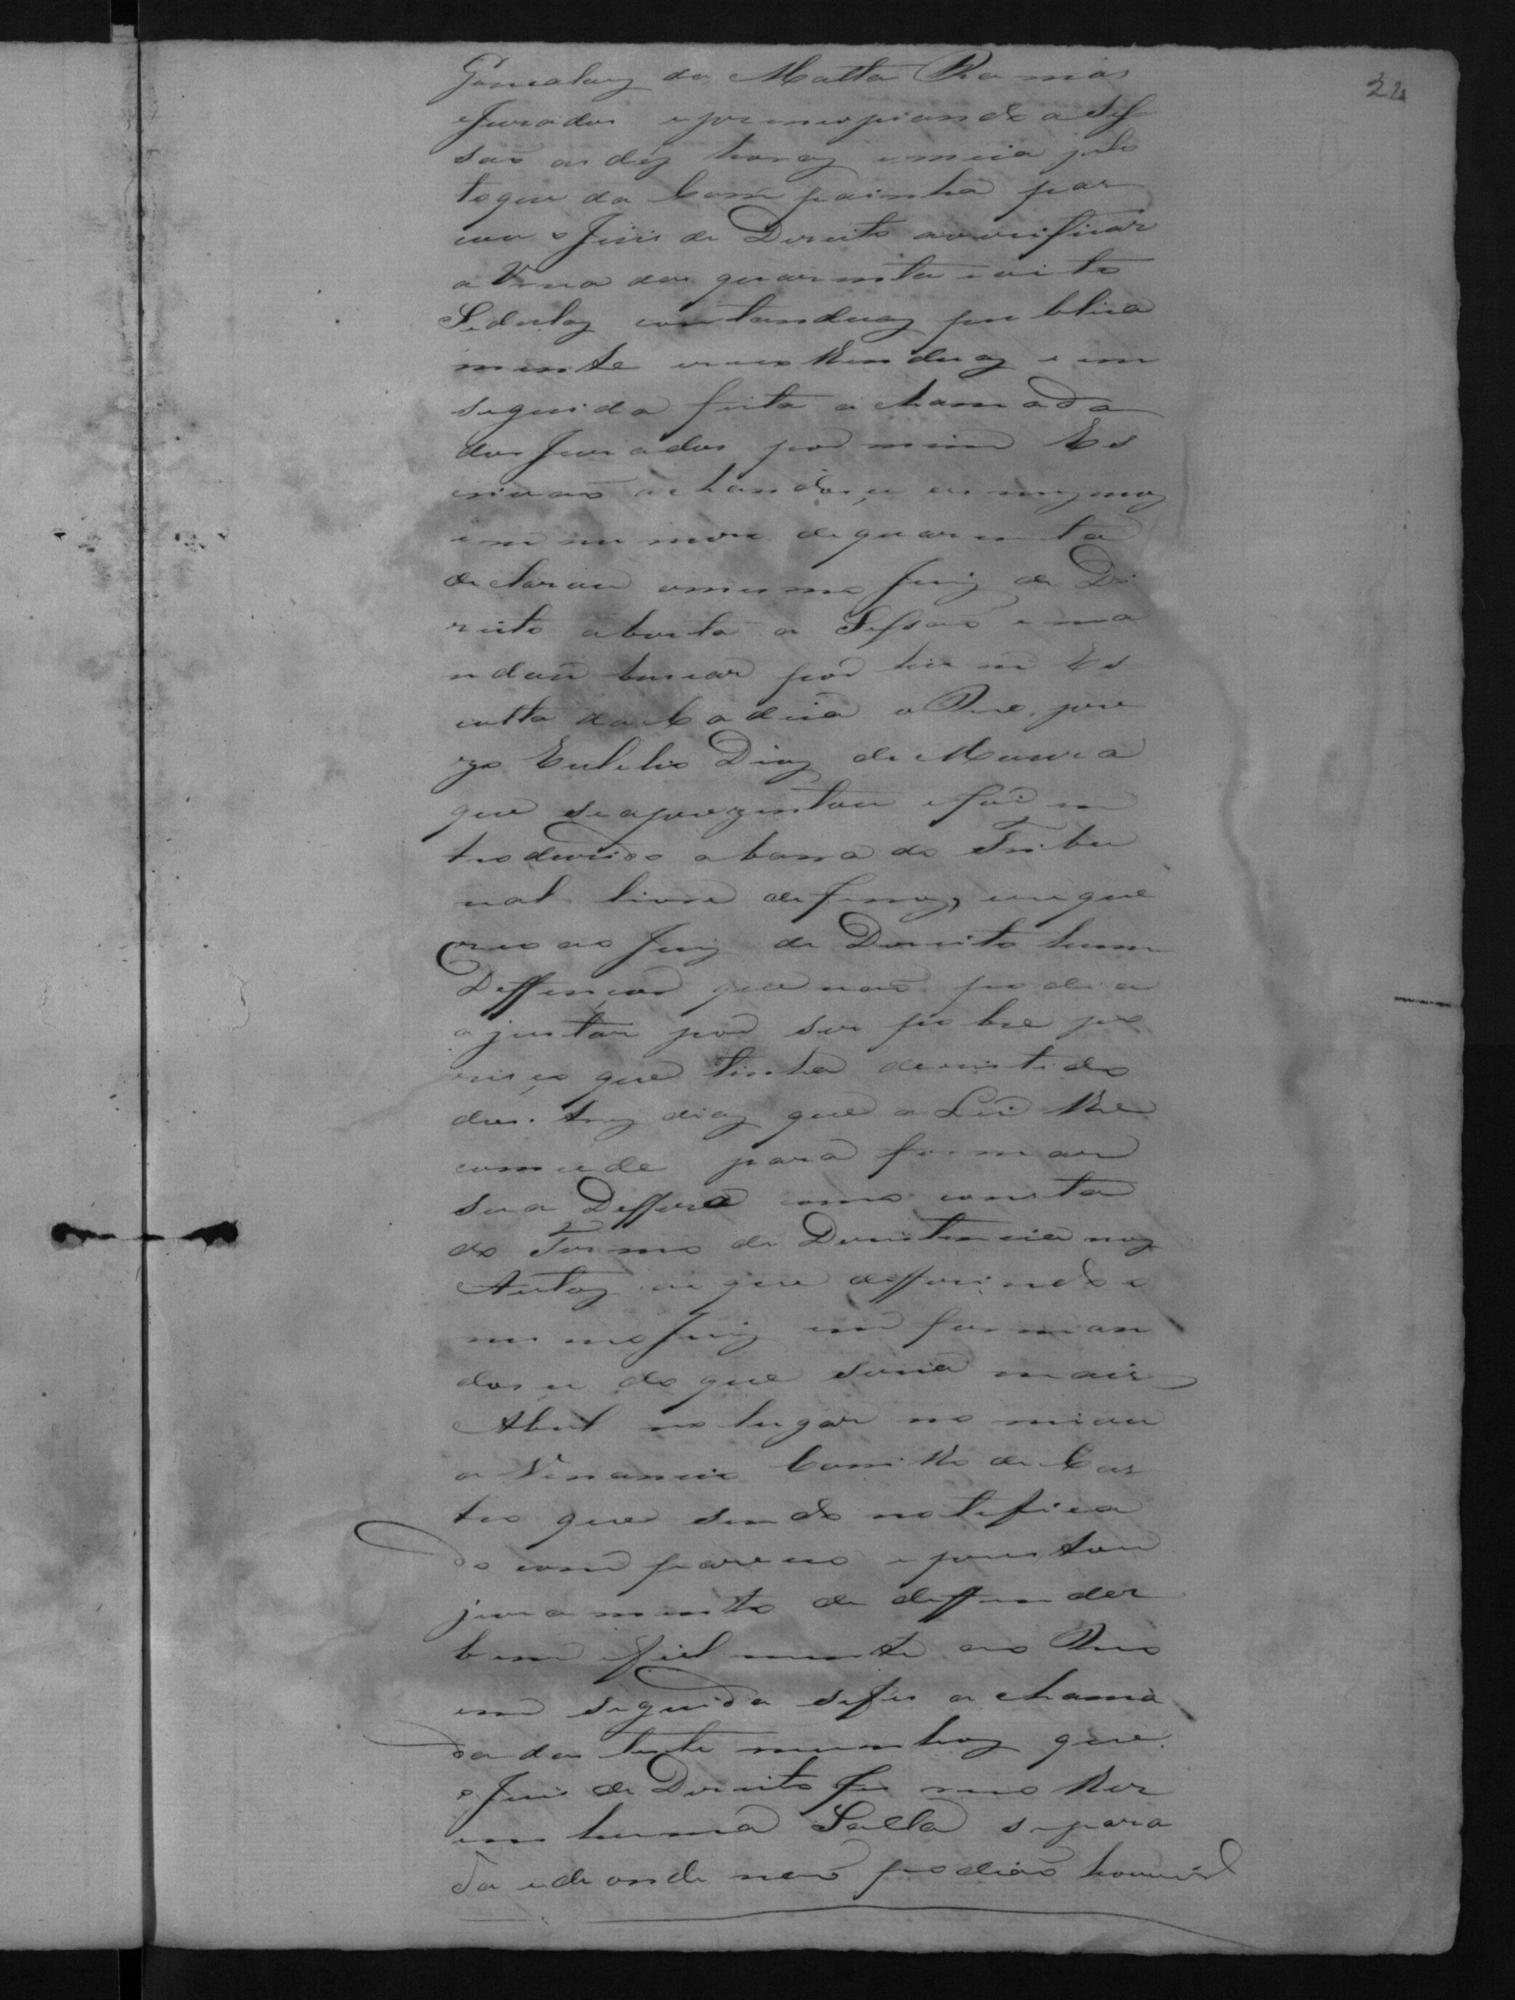 24
Gonsalvez da Matta Ramos
eJurados eprincipiando a Ses
são as déz horaz emeia pelo
toque da Campainha pas
cou o Juis de Direito averificar
a Urna das quarenta e oito
Sedulaz contanduaz publica
mente erecolhenduaz e em
seguida feita achamada
dos Jurados por mim Es
crivaõ achandose os mezmoz
em numero dequarenta
declarou omesmo Juiz de Di
reito aberta a Sessaõ e ma
ndou buscar por huma Es
colta da Cadeia o Reo, pre
zo Eulelio Diaz de Moura
que seaprezentou efoi in
troduzido abarra do Tribu
nal livre deferroz, e
ao Juiz de Direito hum
Deffençor que naõ podia
ajustar por ser pobre po
risço que tinha dezistido
dos trez diaz que a Lei lhe
comcede para formar
sua Deffeza como consta
do Termo de Dezistencia noz
Autoz ao que defferindo o
mesmo Juiz emforman
dose do que seria mais
Abil no lugar nomiou
a Venancio Camillo de Cas
tro que sendo notefica
do compareceo eprestou
juramento de deffender
bem efielmente ao Reo
em seguida sefes achama
da das testemunhaz que
o Juis de Direito fes recolher
em huma Salla separa
da e de onde naõ podiaõ houvir